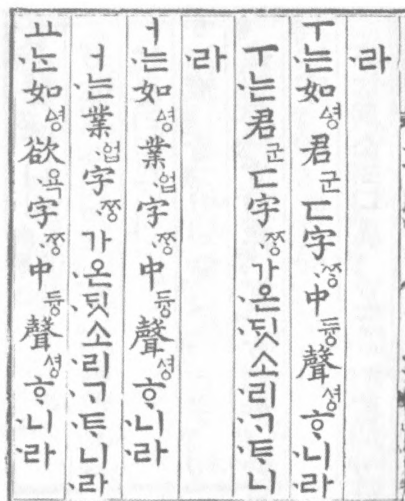 ·라
ㅜ·는如ᅀᅧᆼ君군ㄷ字·ᄍᆞᆼ中듀ᇰ聲셩ᄒᆞ·니·라
ㅜ·는君군ㄷ字·ᄍᆞᆼ가·온·ᄃᆡᆺ소·리·ᄀᆞ·ᄐᆞ니
·라
ㅓ·는如ᅀᅧᆼ業·업字·ᄍᆞᆼ中듀ᇰ聲셩ᄒᆞ·니·라
ㅓ·는業·업字·ᄍᆞᆼ가·온·ᄃᆡᆺ소·리·ᄀᆞ·ᄐᆞ니·라
ㅛ·ᄂᆞᆫ如ᅀᅧᆼ欲·욕字·ᄍᆞᆼ中듀ᇰ聲셩ᄒᆞ·니·라